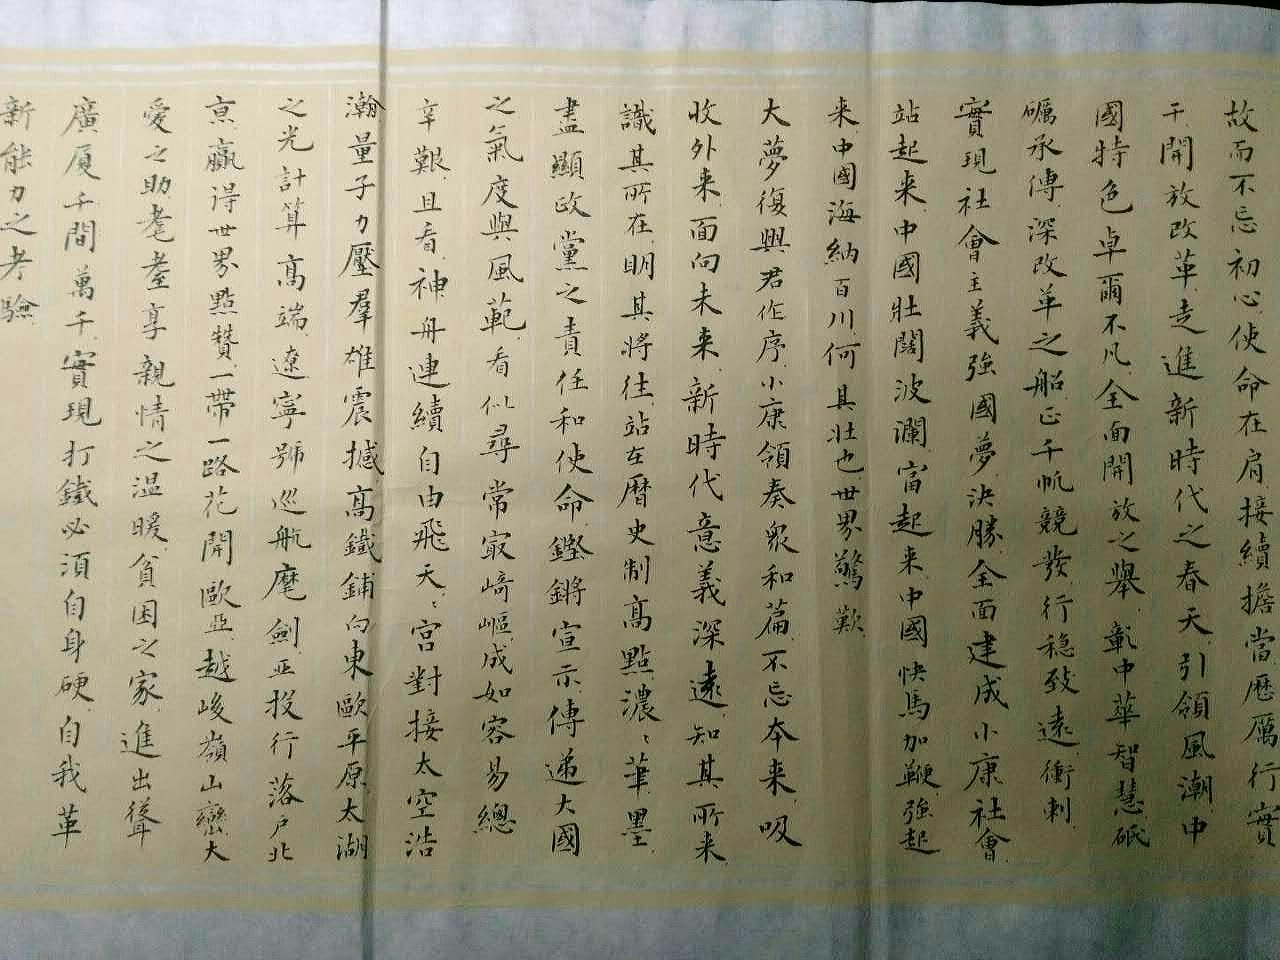 故而不忘初心使命在肩接續擔當歷厲行實
干開放改革走進新時代之春天引領風潮中
國特色卓爾不凡全面開放之舉彰中華智慧砥
礪承傳深改革之船正千帆競發行穩致遠衝刺
實現社會主義強國夢決勝全面建成小康社會
站起來中國壯闊波瀾富起來中國快馬加鞭強起
來中國海納百川何其壯也世界驚歎
大夢復興君作序小康領奏眾和篇不忘本來吸
收外來面向未來新時代意義深遠知其所來
識其所在明其將往站在曆史制高點濃、華墨
盡顯政黨之責任和使命鏗鏘宣示傳递大國
之氣度與風範看似尋常最崎嶇成如容易總
辛艱且看神舟連續自由飛天、宮對接太空浩
瀚量子力壓羣雄震撼高鐵鋪向東歐平原太湖
之光計算高端遼寧號巡航麾劍亚投行落户北
京贏得世界點贊一帶一路花開歐亞越峻嶺山巒大
愛之助耄耋享親情之温暖貧困之家進出聳
廣厦千間萬千實現打鐵必須自身硬自我革
新能力之考驗